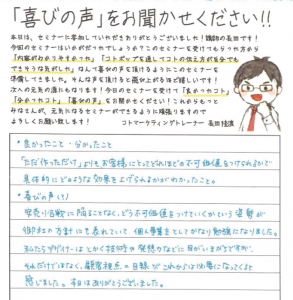 「喜びの声」をお聞かせください!!
本日は、セミナーに参加していただきありがとうございました!講師の長田です!
今回のセミナーはいかがだったでしょうか?このセミナーを受けてもらった方から
「内容がわかりやすかった」「コトポップを通してコトの伝え方が自分でも
できそうな気がした」なんて喜びの声を頂けるようにこのセミナーを
準備してきました。そんな声を頂けると飛び上がるほど嬉しいです!
次への元気の源にもなります!今日のセミナーを受けて「良かったコト」
「分かったコト」「喜びの声」をお聞かせください!これからもっと
みなさんが、元気になるセミナーができるように頑張りますので
よろしくお願い致します!
コトマーケティングトレーナー 長田
・良かったこと・分かったこと
「ただ作っただけ」よりもお客様にとってどれほどの不可価値をつけられるかで
具体的にどのような効果を上げられるかがわかったこと。
・喜びの声(?)
安売り合戦に陥ることなく、どう不可価値をつけていくかという姿勢が
御社の方針にも表れていて、個人事業主としてかなり勉強になりました。
私たちデザイナーはとかく技術や発想などに目がいきがちですが、
それだけではなく、顧客視点の目線がこれからは必要になってくると
感じました。本日はありがとうございました。